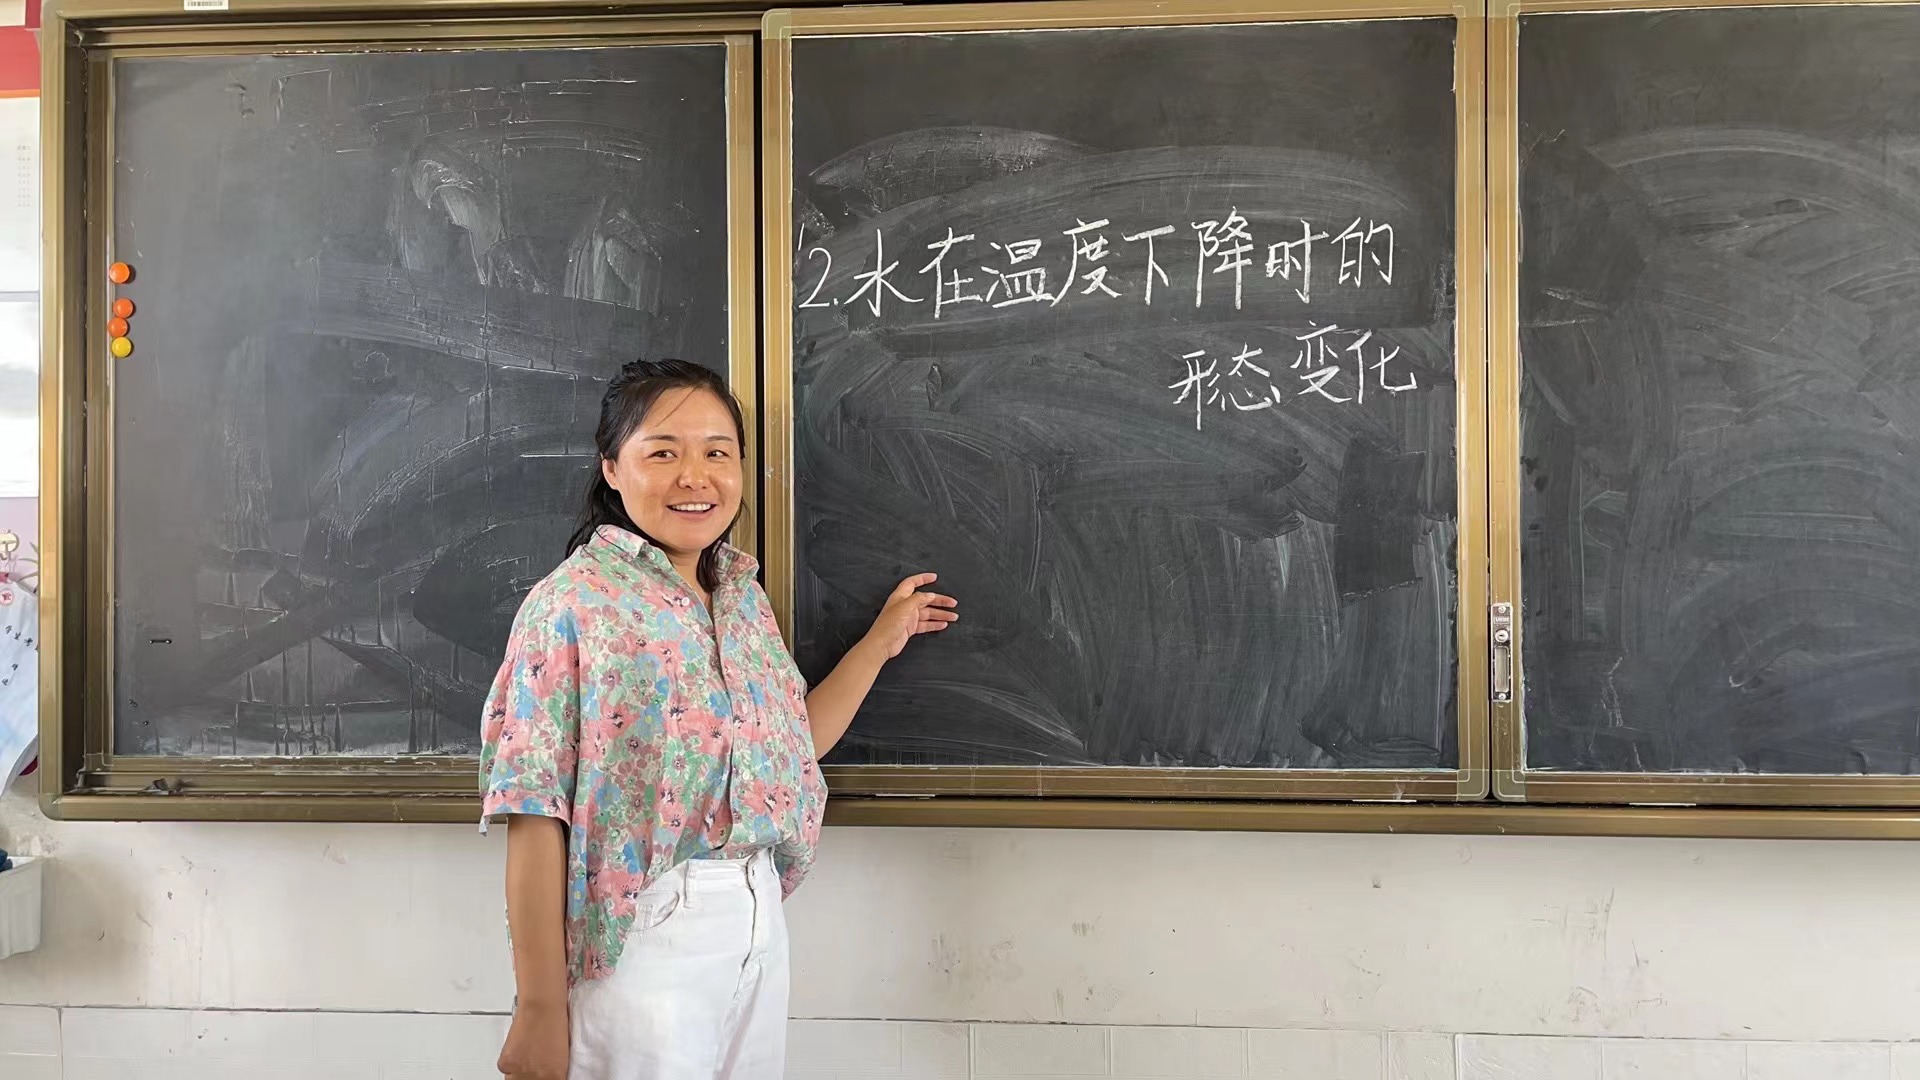 2.水在温度下降时的
形态变化